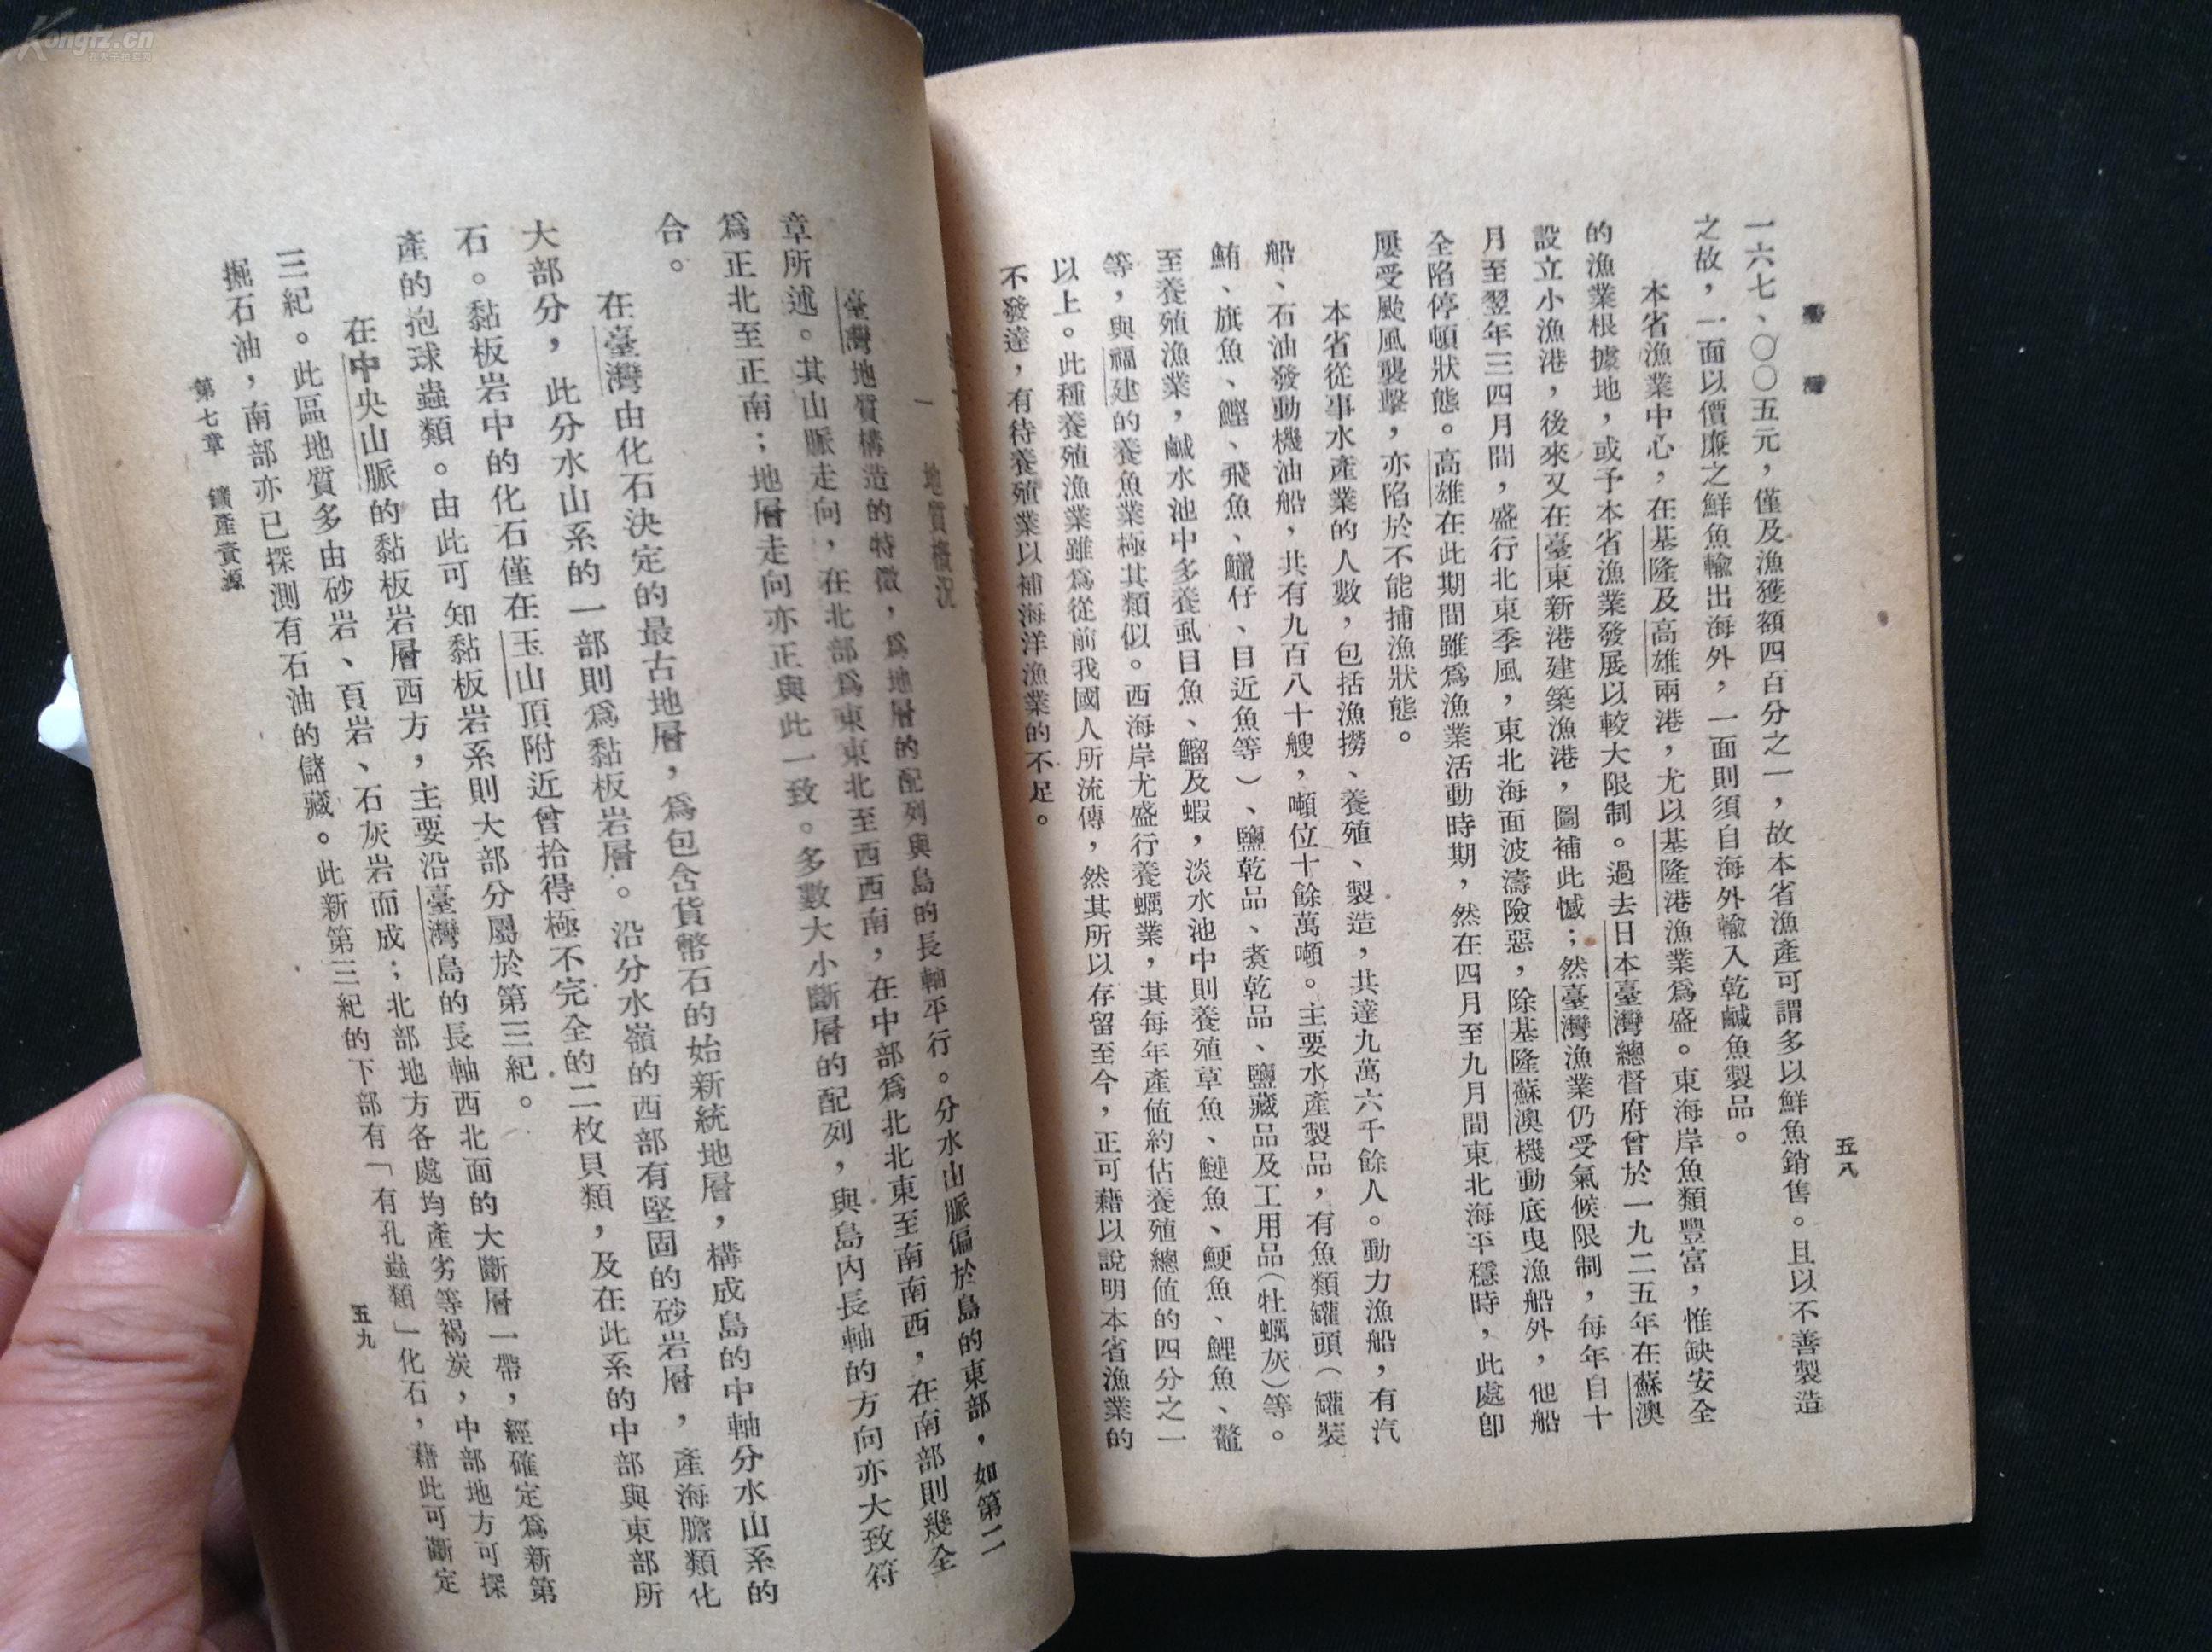 臺灣
五八
一六七、〇〇五元，僅及漁獲額四百分之一，故本省漁產可謂多以鮮魚銷售。且以不善製造
之故，一面以價廉之鮮魚輸出海外，一面則須自海外輸入乾鹹魚製品。
本省漁業中心，在基隆及高雄兩港，尤以基隆港漁業爲盛。東海岸魚類豐富，惟缺安全
的漁業根據地，或予本省漁業發展以較大限制。過去日本臺灣總督府曾於一九二五年在蘇澳
設立小漁港，後來又在臺東新港建築漁港，圖補此憾；然臺灣漁業仍受氣候限制，每年自十
月至翌年三四月間，盛行北東季風，東北海面波濤險惡，除基隆蘇澳機動底曳漁船外，他船
全陷停頓狀態。高雄在此期間雖爲漁業活動時期，然在四月至九月間東北海平穩時，此處卽
屢受颱風襲擊，亦陷於不能捕漁狀態。
本省從事水產業的人數，包括漁撈、養殖、製造，共達九萬六千餘人。動力漁船，有汽
船、石油發動機油船，共有九百八十艘，噸位十餘萬噸。主要水產製品，有魚類罐頭（罐裝
鮪、旗魚、鰹、飛魚、鱲仔、目近魚等）、鹽乾品、煮乾品、鹽藏品及工用品（牡蠣灰）等。
至養殖漁業，鹹水池中多養虱目魚、鰡及蝦，淡水池中則養殖草魚、鰱魚、鯁魚、鯉魚、鼈
等，與福建的養魚業極其類似。西海岸尤盛行養蠣業，其每年產值約佔養殖總值的四分之一
以上。此種養殖漁業雖爲從前我國人所流傳，然其所以存留至今，正可藉以說明本省漁業的
不發達，有待養殖業以補海洋漁業的不足。
一 地質概況
臺灣地質構造的特徵，爲地層的配列與島的長軸平行。分水山脈偏於島的東部，如第二
章所述。其山脈走向，在北部爲東東北至西西南，在中部爲北北東至南南西，在南部則幾全
爲正北至正南；地層走向亦正與此一致。多數大小斷層的配列，與島內長軸的方向亦大致符
合。
在臺灣由化石決定的最古地層，爲包含貨幣石的始新統地層，構成島的中軸分水山系的
大部分，此分水山系的一部則爲黏板岩層。沿分水嶺的西部有堅固的砂岩層，產海膽類化
石。黏板岩中的化石僅在玉山頂附近曾拾得極不完全的二枚貝類，及在此系的中部與東部所
產的抱球蟲類。由此可知黏板岩系則大部分屬於第三紀。
在中央山脈的黏板岩層西方，主要沿臺灣島的長軸西北面的大斷層一帶，經確定爲新第
三紀。此區地質多由砂岩、頁岩、石灰岩而成；北部地方各處均產劣等褐炭，中部地方可探
掘石油，南部亦已探測有石油的儲藏。此新第三紀的下部有「有孔蟲類」化石，藉此可斷定
第七章 鑛產資源
五九
Kongfz.cn